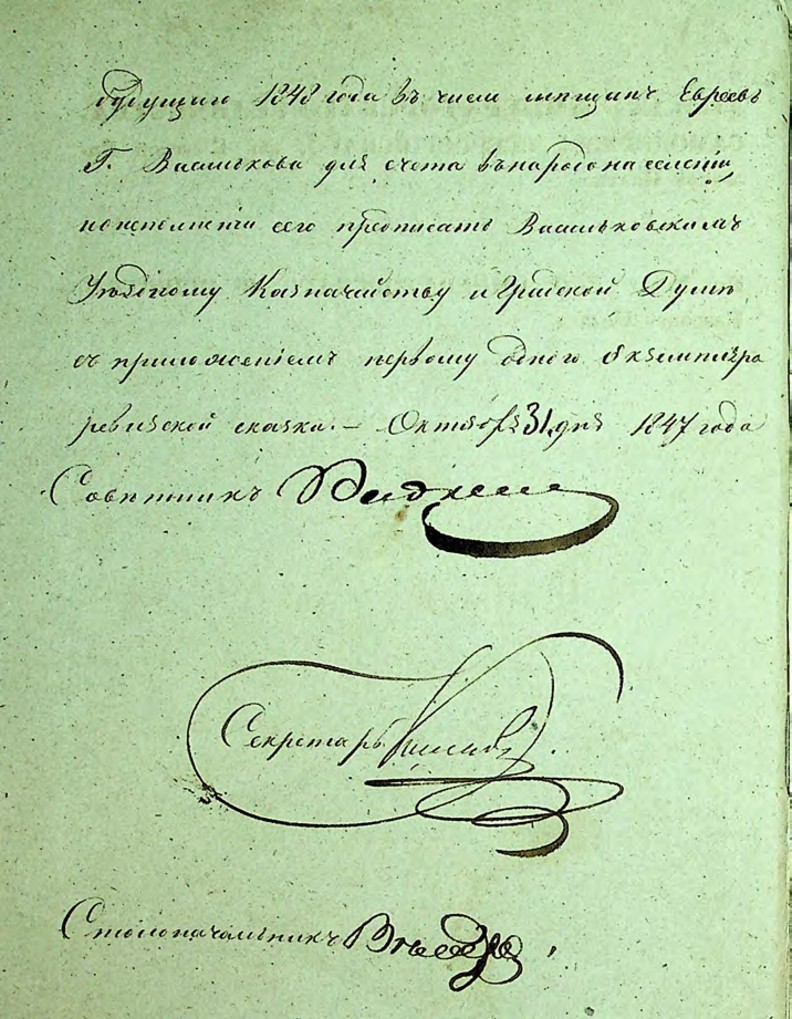 будущаго 1848 года въ число мѣщанъ Евреевъ
Г. Василькова для счета въ народонаселеніи,
по исполненіи сего предписать Васильковскимъ
Уѣздному Казначейству и Градской Думѣ
съ приложеніемъ первому одного Экземпляра
ревизской сказки. — Октября 31 дня 1847 года
Совѣтникъ
Секретарь
Столоначальникъ